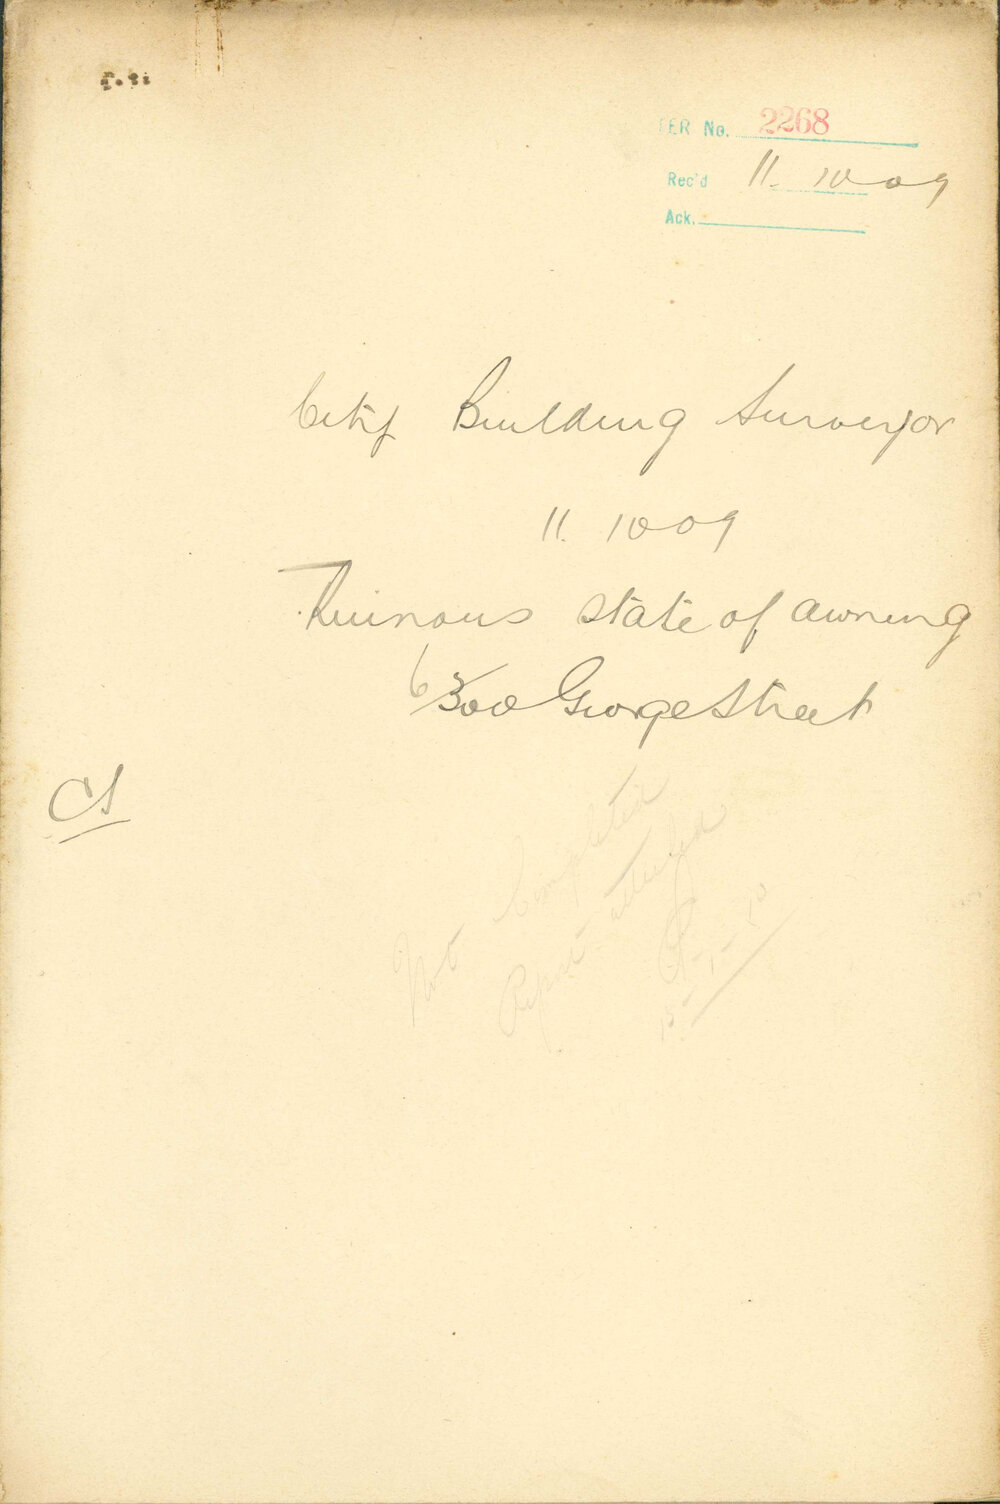 ER No. 2268
Rec'd 11. 10 09
Ack.
City Building Surveyor
11. 10 09
Ruinous state of awning
George Street
CS
Not Completed
Report attached
15-1-10